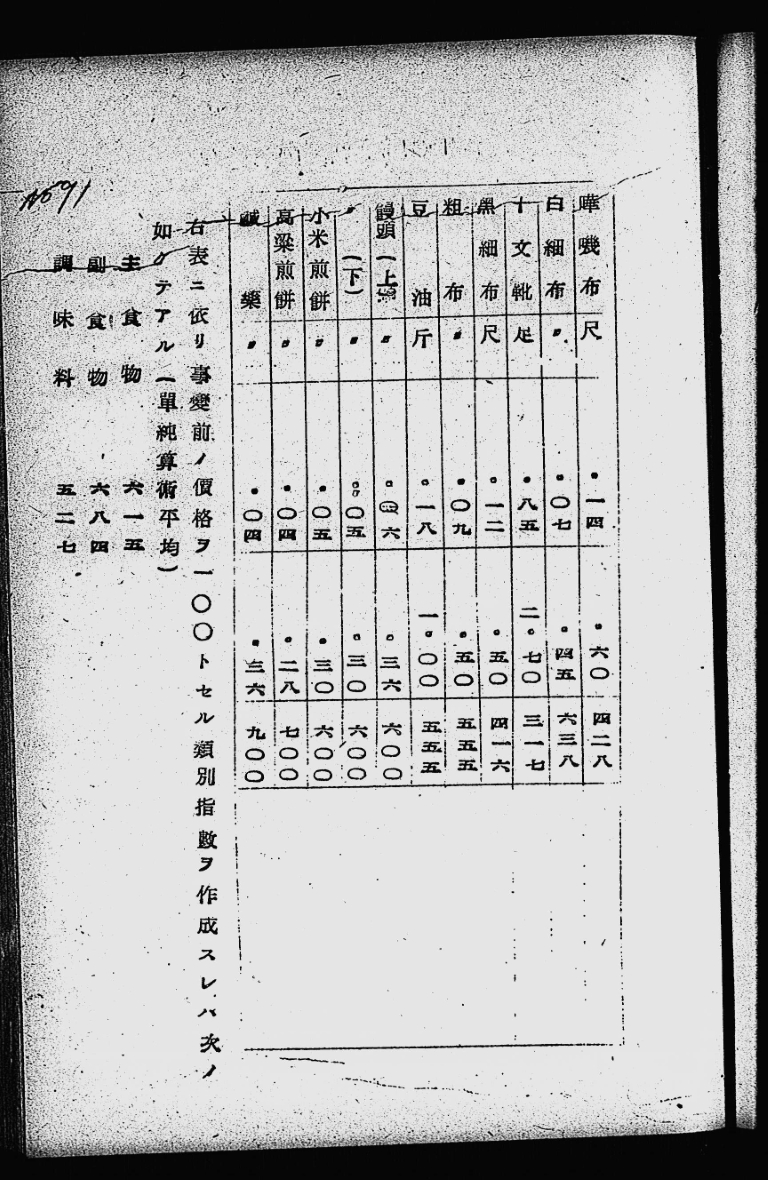 嗶嘰布 尺 。一四 。六〇 四二八
白細布 〃 。〇七 。四五 六三八
十文靴 足 。八五 二。七〇 三一七
黑細布 尺 。一二 。五〇 四一六
粗布 〃 。〇九 。五〇 五五五
豆油 斤 。一八 一。〇〇 五五五
饅頭(上等) 〃 。〇六 。三六 六〇〇
〃(下) 〃 。〇五 。三〇 六〇〇
小米煎餅 〃 。〇五 。三〇 六〇〇
高粱煎餅 〃 。〇四 。二八 七〇〇
鹹菜 〃 。〇四 。三六 九〇〇
右表ニ依リ事變前ノ價格ヲ一〇〇トセル類別指數ヲ作成スレバ次ノ
如クテアル(單純算術平均)
主食物 六一五
副食物 六八四
調味料 五二七
No 91